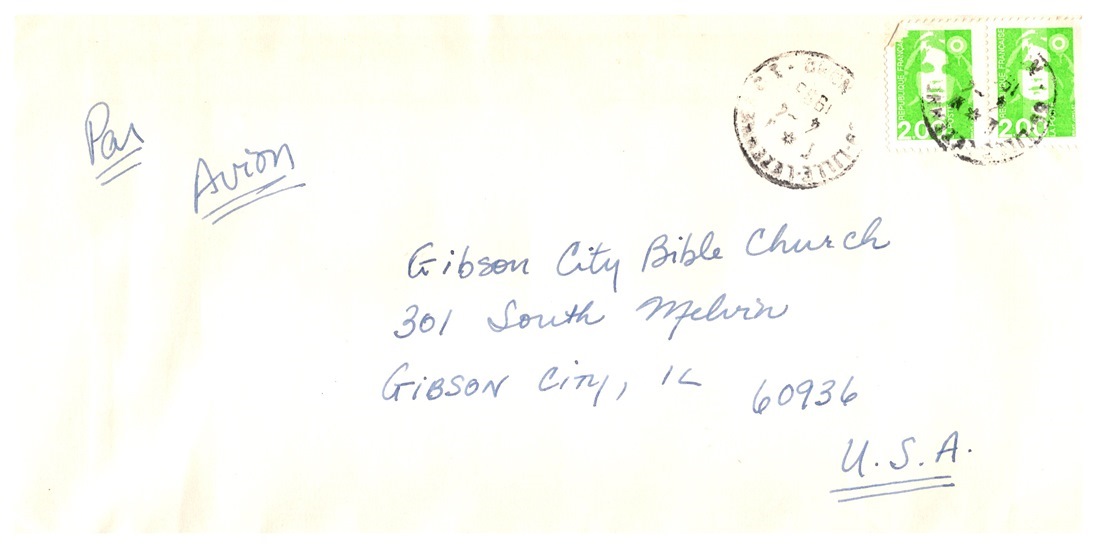 Par
Avion
REPUBLIQUE FRANÇAISE
2.00
2.00
1993
LILLE
Gibson City Bible Church
301 South Melvin
GIBSON CITY, IL 60936
U.S.A.